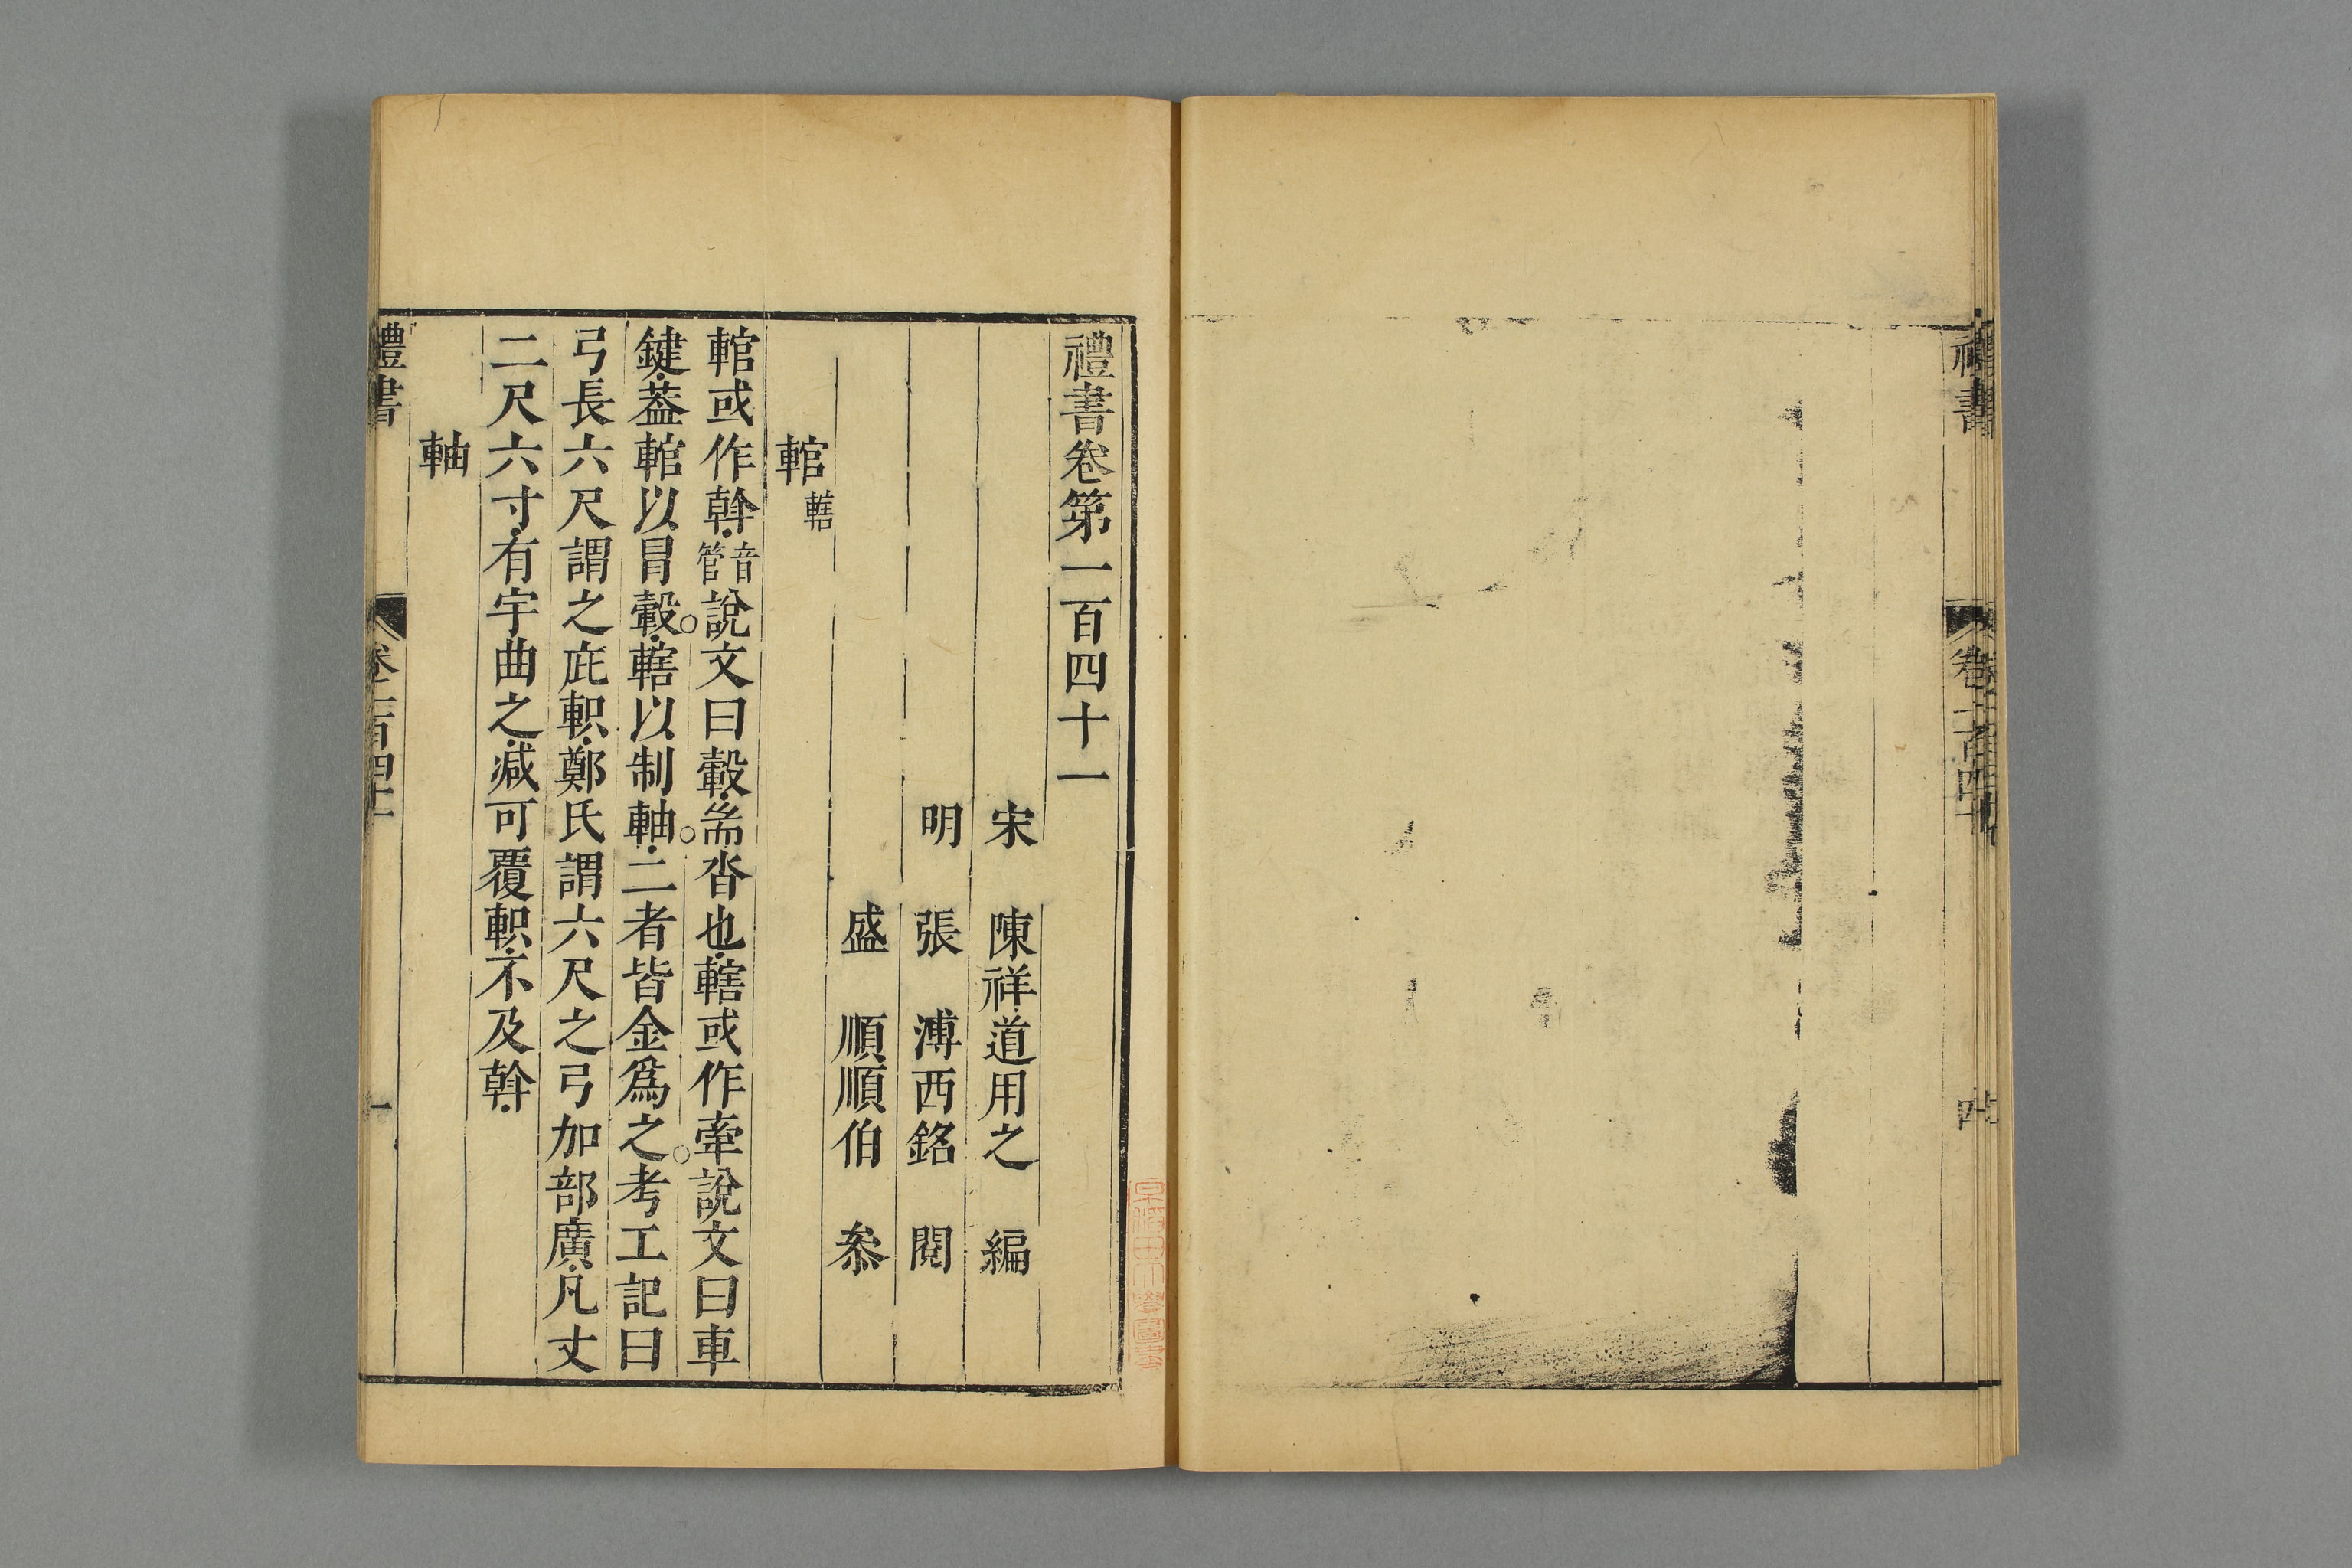 禮書卷第一百四十一
宋 陳祥道用之 編
明 張 溥西銘 閱
盛 順順伯 叅
輨 轄
輨或作斡音管說文曰轂耑沓也轄或作舝說文曰車
鍵葢輨以冒轂轄以制軸二者皆金爲之考工記曰
弓長六尺謂之庇軹鄭氏謂六尺之弓加部廣凡丈
二尺六寸有宇曲之减可覆軹不及斡
軸
禮書 卷一百四十一 一